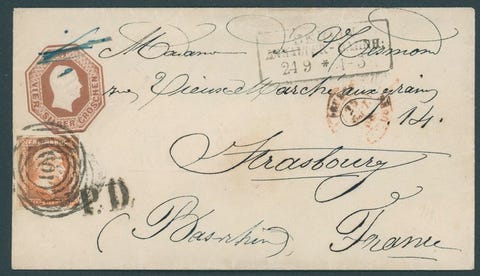 VIER SILBER GROSCHEN
24 9 * 4-5
Madame V. Tesmond
rue Vieux Marché aux grains
14.
Strasbourg
(Bas-rhin) France
P.D.